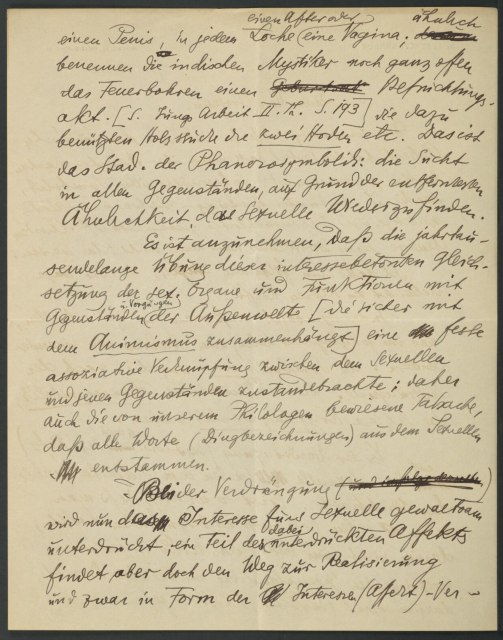 einen After oder ähnlich
einen Penis, in jedem Loche eine Vagina;
benennen die indischen Mystiker noch ganz offen
das Feuerbohren einen Geburtsakt Befruchtungs-
akt. [S. Jungs Arbeit II. Th. S. 193] die dazu
benützten Holzstücke die zwei Hoden etc. Das ist
das Stad. der Phanerosymbolik: die Sucht
in allen Gegenständen, auf Grund der entferntesten
Ähnlichkeit, das Sexuelle Wiederzufinden.
Es ist anzunehmen, daß die jahrtau-
sendelange Übung dieser interessebetonten Gleich-
setzung der sex. Organe und Funktionen mit
u. Vorgängen
Gegenständen der Außenwelt [die sicher mit
dem Animismus zusammenhängt] eine feste
assoziative Verknüpfung zwischen dem Sexuellen
und jenen Gegenständen zustandebrachte; daher
auch die von unserem Philologen bewiesene Tatsache,
daß alle Worte (Dingbezeichnungen) aus dem Sexuellen
entstammen.
Bei der Verdrängung
wird nun das Interesse fürs Sexuelle gewaltsam
dabei
unterdrückt, ein Teil des unterdrückten Affekts
findet aber doch den Weg zur Realisierung
und zwar in Form der Interessen (Affekt)-Ver-